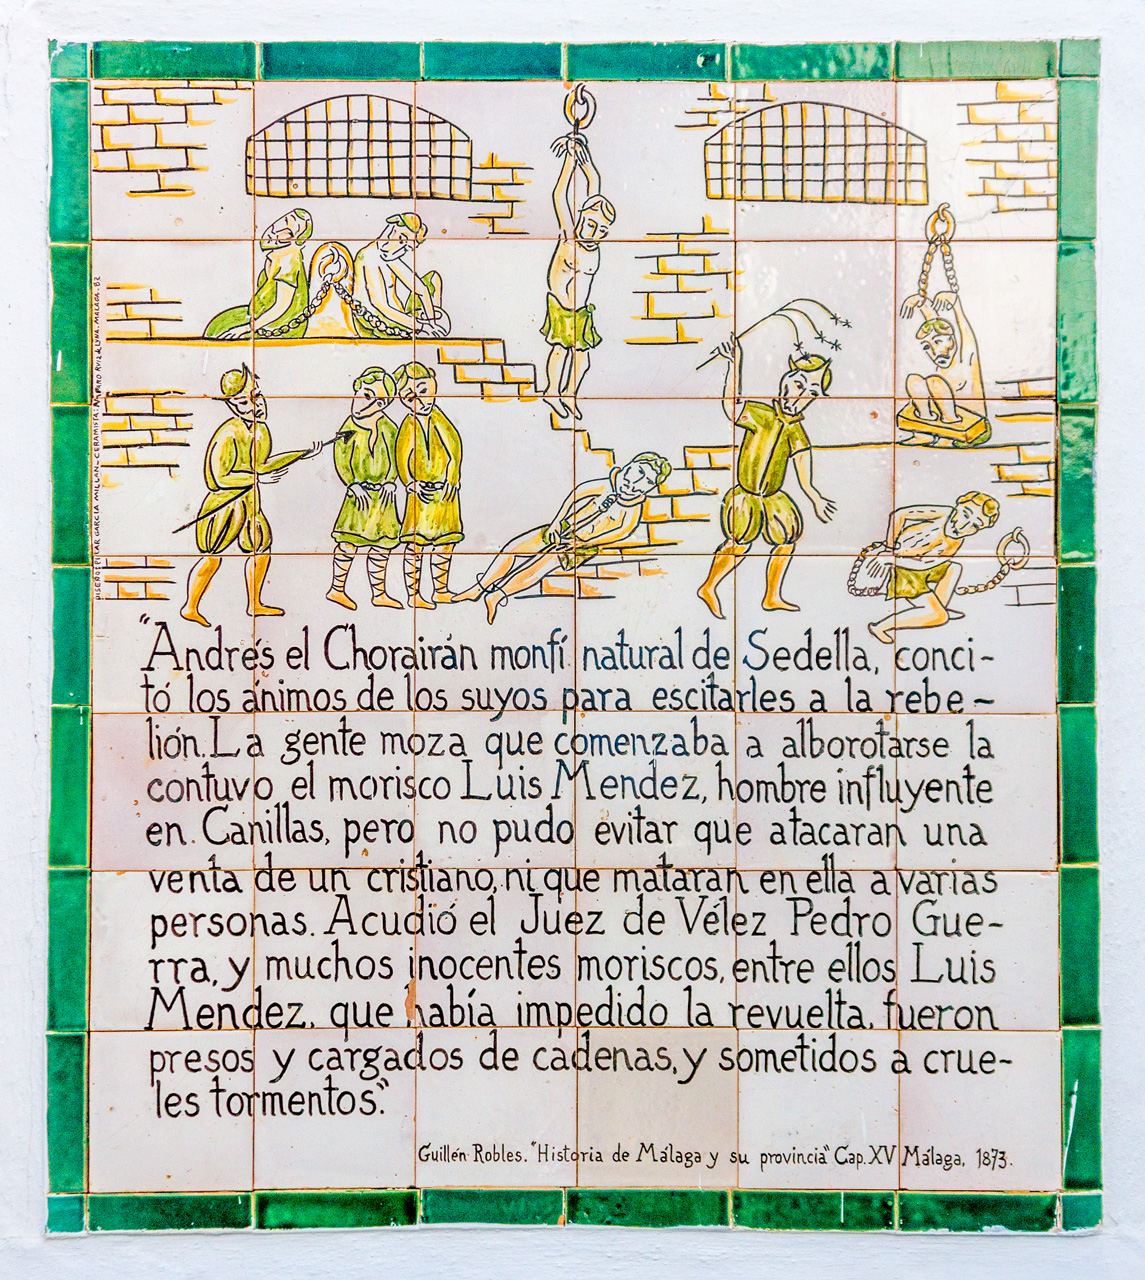 "Andrés el Chorairán monfí natural de Sedella, conci-
tó los ánimos de los suyos para escitarles a la rebe-
lión. La gente moza que comenzaba a alborotarse la
contuvo el morisco Luis Mendez, hombre influyente
en Canillas, pero no pudo evitar que atacaran una
venta de un cristiano, ni que mataran en ella a varias
personas. Acudió el Juez de Vélez Pedro Gue-
rra, y muchos inocentes moriscos, entre ellos Luis
Mendez, que había impedido la revuelta, fueron
presos y cargados de cadenas, y sometidos a crue-
les tormentos."
Guillén Robles. "Historia de Málaga y su provincia" Cap. XV Málaga, 1873.
DISEÑO: PILAR GARCÍA MILLÁN - CERAMISTA: AMPARO RUIZ DE LUNA. MÁLAGA. 82